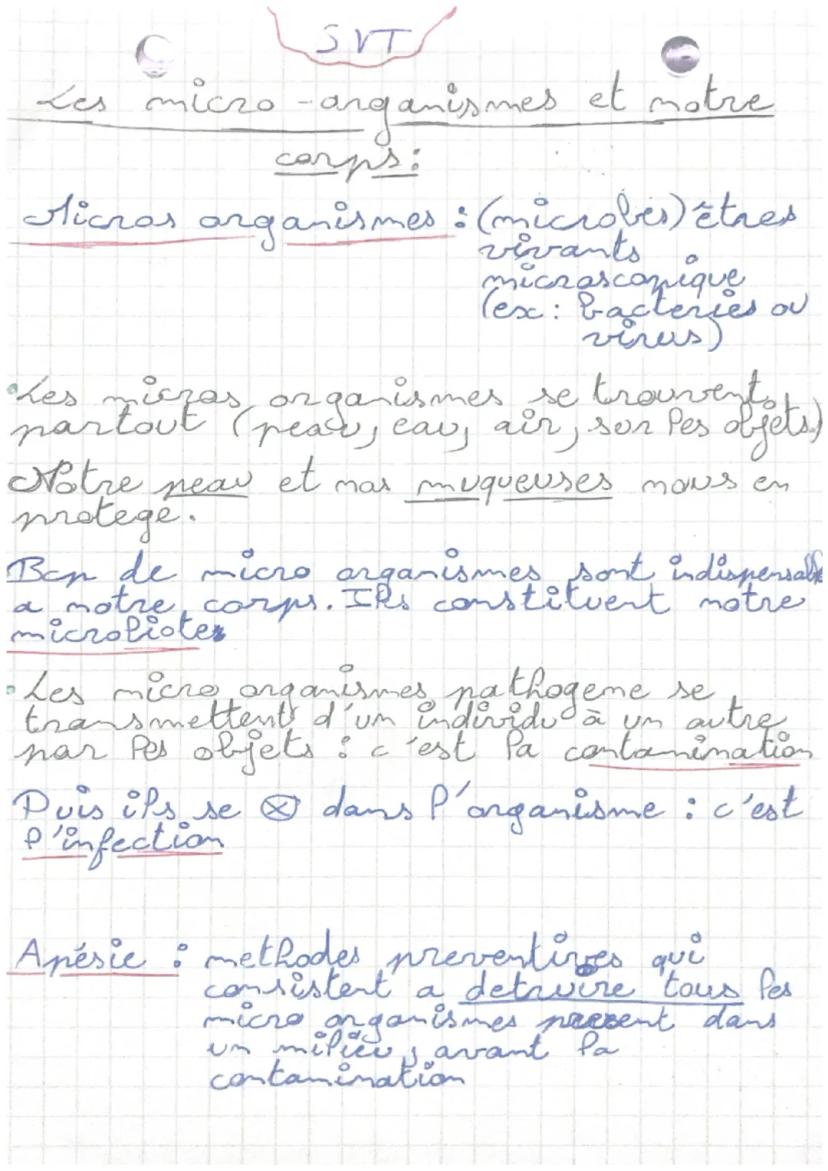 SVT
Les micro-organismes et notre
corps :
Micros organismes : (microbes) êtres
vivants
microscopique
(ex : bacteries ou
virus)
• Les micros organismes se trouvent
partout (peau, eau, air, sur les objets)
Notre peau et nos muqueuses nous en
protege.
Bcp de micro organismes sont indispensable
a notre corps. Ils constituent notre
microbiote
• Les micro organismes pathogene se
transmettent d'un individu à un autre
par les objets : c'est la contamination
Puis ils se ⊗ dans l'organisme : c'est
l'infection
Apésie : methodes preventives qui
consistent a detruire tous les
micro organismes present dans
un milieu, avant la
contamination